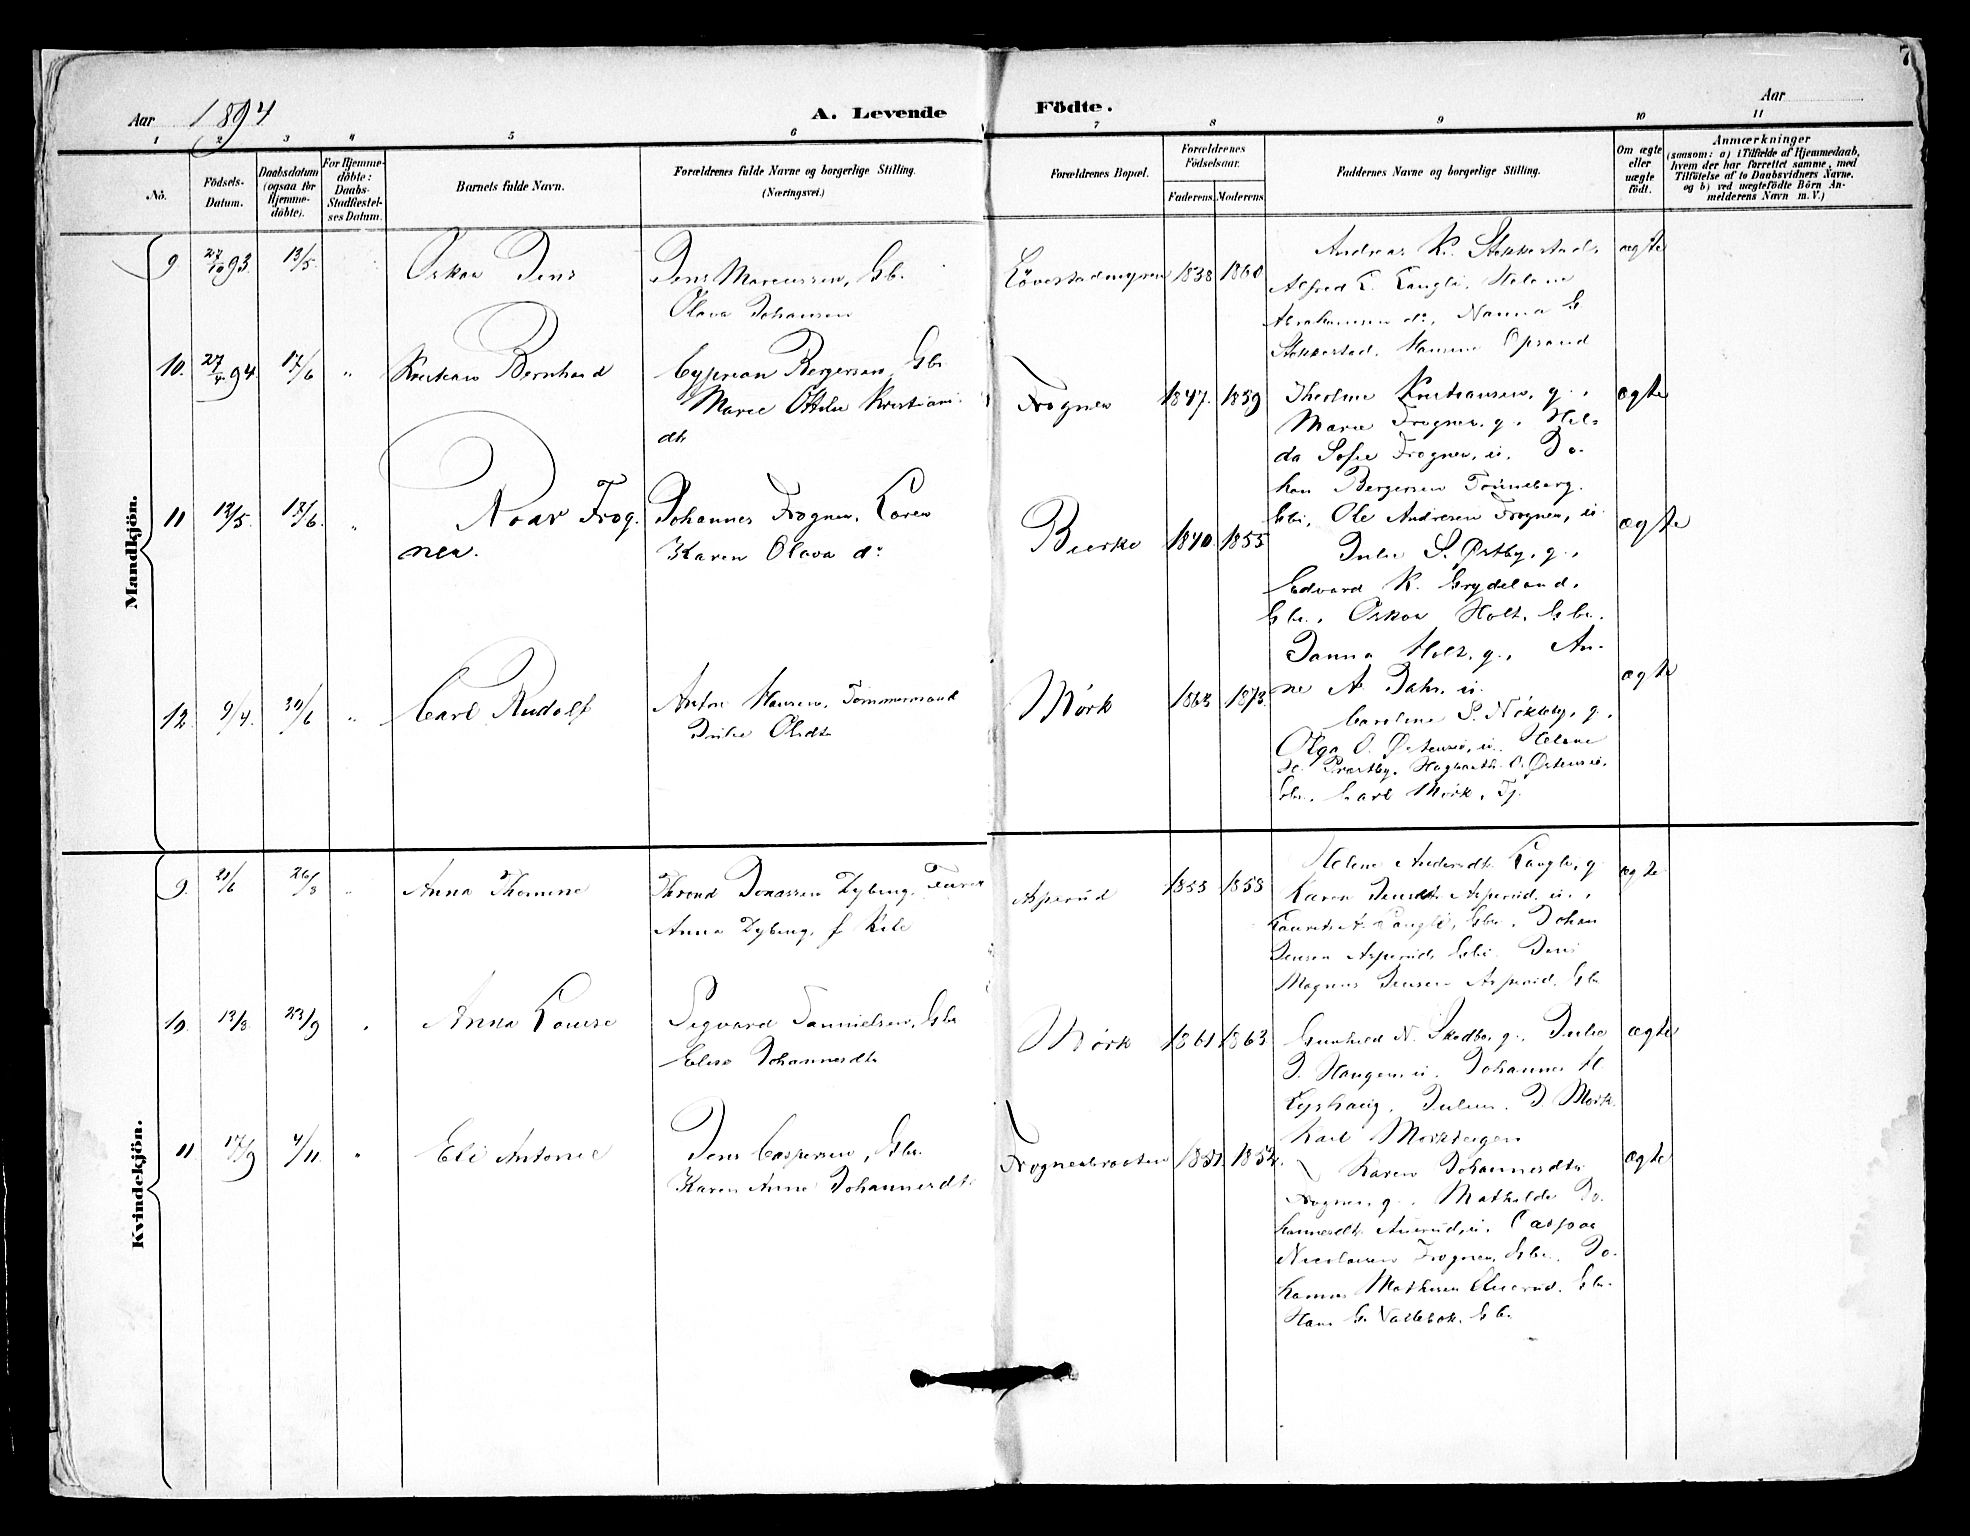 7
Aar 1894
A. Levende Födte.
Aar
1 2 3 4 5 6 7 8 9 10 11
No.
Födsels-Datum.
Daabsdatum (ogsaa for Hjemmedöbte).
For Hjemmedöbte: Daabs-Stadfæstelses Datum.
Barnets fulde Navn.
Forældrenes fulde Navne og borgerlige Stilling.
(Næringsvei.)
Forældrenes Bopæl.
Forældrenes Födselsaar.
Faderens. Moderens.
Faddernes Navne og borgerlige Stilling.
Om ægte eller uægte födt.
Anmærkninger
(saasom: a) i Tilfælde af Hjemmedaab, hvem der har forrettet samme, med Tilföielse af to Daabsvidners Navne. og b) ved uægtefödte Börn Anmelderens Navn m. V.)
Mandkjön.
9 27/10 93. 13/5. Oskar Jens
Jens Marcussen, Gbr.
Olava Johansen
1838 1860
Andreas K. Stokkestad,
Alfred L. Langli, Helene
Abrahamsen do, Nanna G
Stokkestad, Opsand
ægte
10. 27/4 94. 17/6 " Kristian Bernhard
Cyprian Bergersen, Gbr
Marie Otilie Kristians-
dtr
Frogner 1847. 1859
Kristiansen, g.,
Marie Frogner, g. Hil-
da Sofie Frogner, u. Jo-
han Bergersen Tönneberg.
Gbr, Ole Andresen Frogner, u.
ægte
11 12/5. 17/6. " Roar Frog-
ner.
Johannes Frogner, Lærer
Karen Olava do
Bjerke 1840. 1855
Julie S. Østby, g.,
Edvard K. Grydeland,
Gbr., Oskar Holt, Gbr.
Janna Holt, g., An-
ne A. Dahr, u.
ægte
12. 9/4. 30/6 " Carl Rudolf
Anton Hansen, Tømmermand
Julie Olsdtr
Mörk 1863 1873.
Caroline S. Nökleby, g.,
Olga O. Østensiö, u. Helene
H. Præstby, O. Østensiö,
Gbr. Carl Mörk, Tj.
ægte
Kvindekjön.
9. 21/6 26/8 " Anna Thomine
Thrond Jonassen Nybeng,
Anna Nybeng, f. Kile
Asperud 1853 1858
Helene Andersdtr. Langli, g.
Karen Jensdtr Asperud, u.,
Laurits A. Langli, Gbr. Johan
Jensen Asperud, Gbr. Jens
Magnus Jensen Asperud, Gbr
ægte
10. 13/8. 23/9 " Anna Louise
Sigvard Danielsen, Gbr
Elise Johannesdtr
Mörk 1861 1863.
Gunhild N. Skodbo, g., Julie
J. Haugen, u. Johannes H.
Lyshaug, Julius J. Mörk.
Karl Mörkteigen
ægte
11 17/9 4/11. " Eli Antonie
Jens Caspersen, Gbr.
Karen Anne Johannesdtr
Frognerbraaten 1851. 1854.
Karen Johannesdtr
Frogner, g., Mathilde Jo-
hannesdtr. Auerud, u. Caspar
Nicolaisen Frogner, Gbr. Jo-
hannes Mathisen Auerud, Gbr.
Hans G. Vallebök, Gbr.
ægte